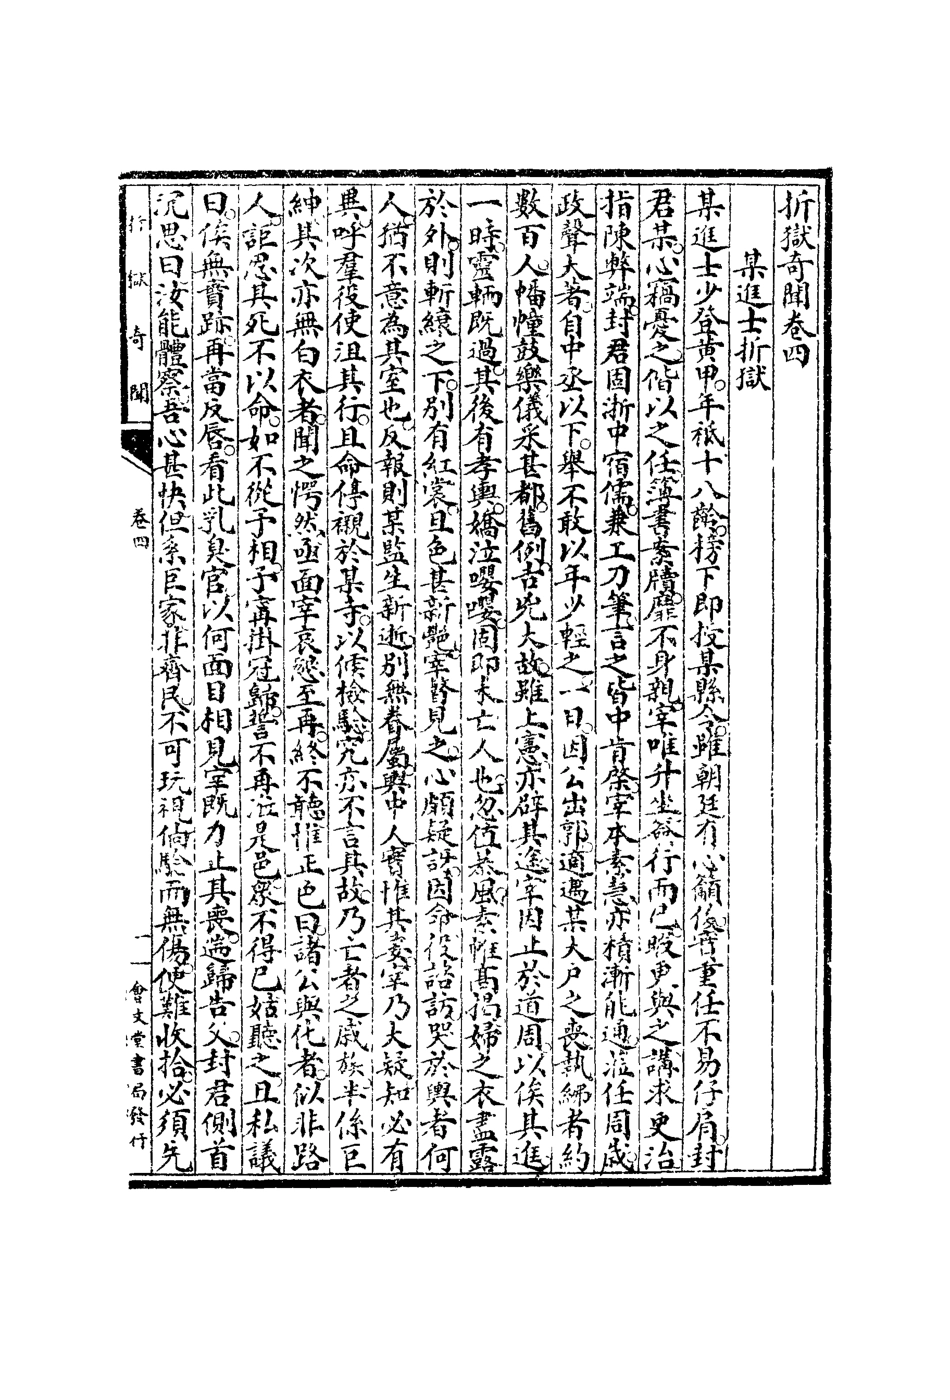 折獄奇聞卷四
某進士折獄
某進士少登黃甲。年祗十八齡。榜下即授某縣令。雖朝廷有心籲俊。實重任不易仔肩。封
君某。心竊憂之。偕以之任。簿書案牘。靡不身親。宰唯升坐畨行而已。暇更與之講求吏治
指陳弊端。封君固浙中宿儒。兼工刀筆。言之皆中肯綮。宰本素慧。亦積漸能通。涖任周歲。
政聲大著。自中丞以下。舉不敢以年少輕之。一日。因公出郭。適遇某大戶之喪。執紼者約
數百人。幡幢鼓樂。儀采甚都。舊例。吉兇大故。雖上憲亦辟其途。宰因止於道周。以俟其進
一時。靈輀既過。其後有孝輿。嬌泣嚶嚶。固即未亡人也。忽值暴風。素帷高揭。婦之衣盡露
於外。則斬縗之下。別有紅裳。且色甚新艷。宰瞥見之。心頗疑訝。因命役詒訪哭於輿者何
人。猶不意為其室也。反報則某監生新逝。別無眷屬。輿中人實惟其妻。宰乃大疑。知必有
異。呼羣役使沮其行。且命停櫬於某寺。以候檢驗。究亦不言其故。乃亡者之戚族。半係巨
紳。其次亦無白衣者。聞之愕然。亟面宰哀懇至再。終不聽。惟正色曰。諸公與化者。似非路
人。詎忍其死不以命。如不從予相。予寗掛冠歸。誓不再涖是邑。眾不得已。姑聽之。且私議
曰。俟無實跡。再當反唇。看此乳臭官。以何面目相見。宰既力止其喪。遄歸告父。封君側首
沉思曰。汝能體察。吾心甚快。但系巨家。非齊民。不可玩視。倘驗而無傷。便難收拾。必須先
折獄奇聞
卷四
一
會文堂書局發行